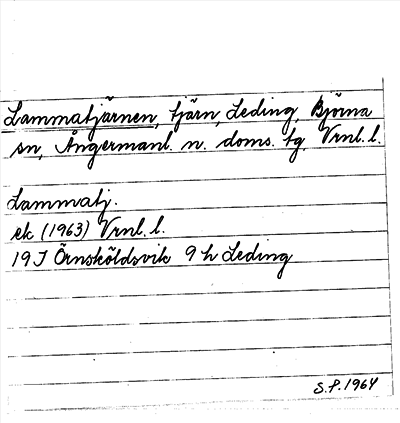 Lammatjärnen, tjärn, Leding, Björna
sn, Ångermanl. n. doms. tg, Vrnl. l.
Lammatj.
ek (1963) Vrnl. l.
19 J Örnsköldsvik 9 h Leding
S.P. 1964